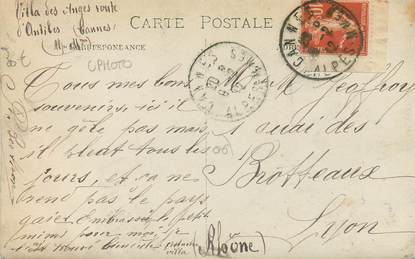 Villa des Anges route
d'Antibes Cannes
CARTE POSTALE
CORRESPONDANCE
CPHOTO
Tous mes bons
souvenirs, ici il
ne gèle pas mais
il pleut tous les
jours, et ça ne
rend pas le pays
gai et Embrasse le petit
mimi pour moi je
villa
M. M. Geoffroy
1 quai des
Brotteaux
Lyon
(Rhône)
CANNES
ALPES
CANNES
ALPES
10
06